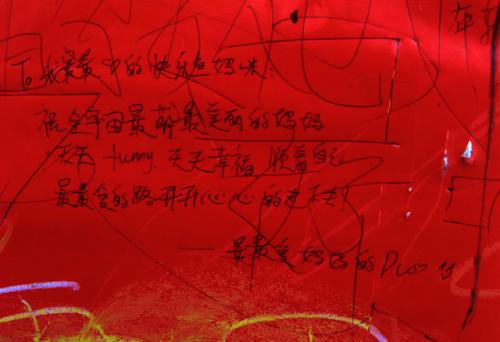 To 我最最的快乐妈咪:
祝全宇宙最萌最美丽的妈妈
天天 funny 天天幸福 顺着自己
最最爱的路开开心心的走下去!
最最爱妈妈的